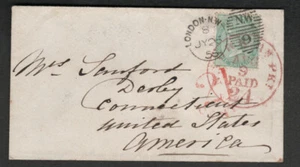 LONDON-N.W
NW
PKT
9
PAID
Mrs Samford
Derby
Connecticut
United States
America